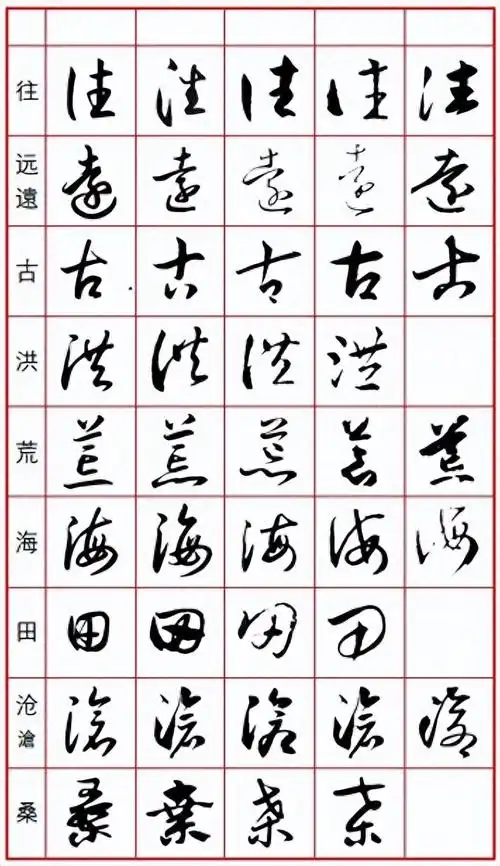 往 往 往 往 往 往
远遠 遠 遠 遠 遠 遠
古 古 古 古 古 古
洪 洪 洪 洪 洪
荒 荒 荒 荒 荒 荒
海 海 海 海 海 海
田 田 田 田 田
沧滄 滄 滄 滄 滄 滄
桑 桑 桑 桑 桑